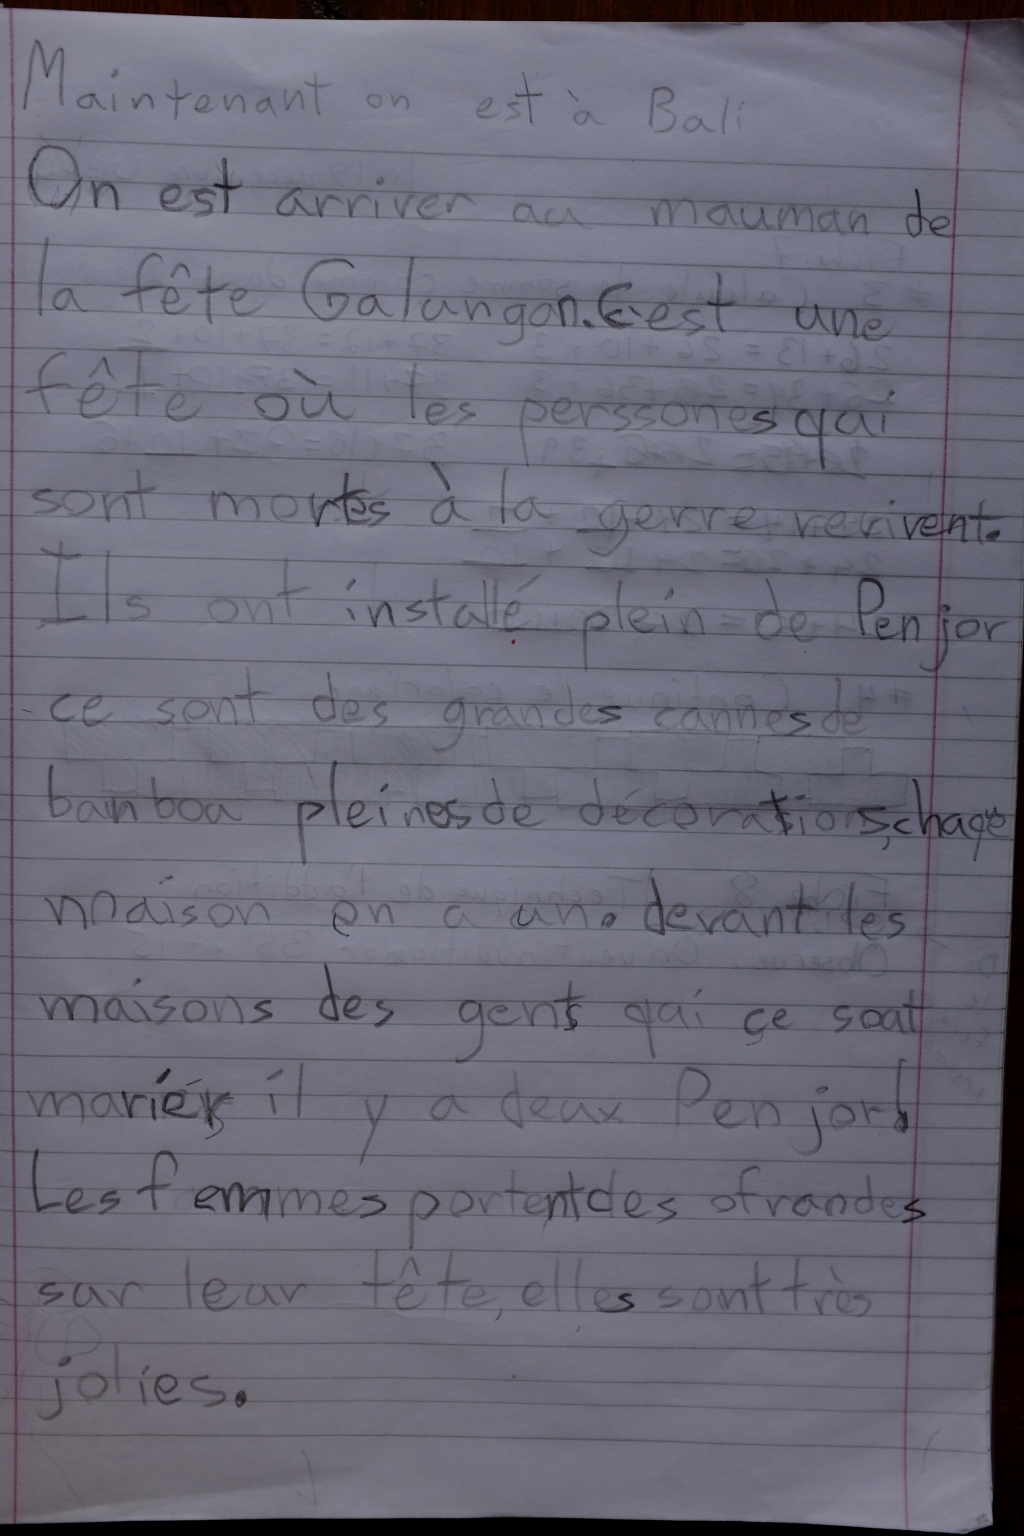 Maintenant on est à Bali
On est arriver au mauman de
la fête Galangan. C'est une
fête où les perssones qui
sont mortes à la gerre revivent.
Ils ont installé plein de Penjor
ce sont des grandes cannes de
bamboa pleines de décorations, chaqe
maison en a un. devant les
maisons des gents qui çe soat
mariés il y a deux Penjors
Les femmes portent des ofrandes
sur leur tête, elles sont très
jolies.